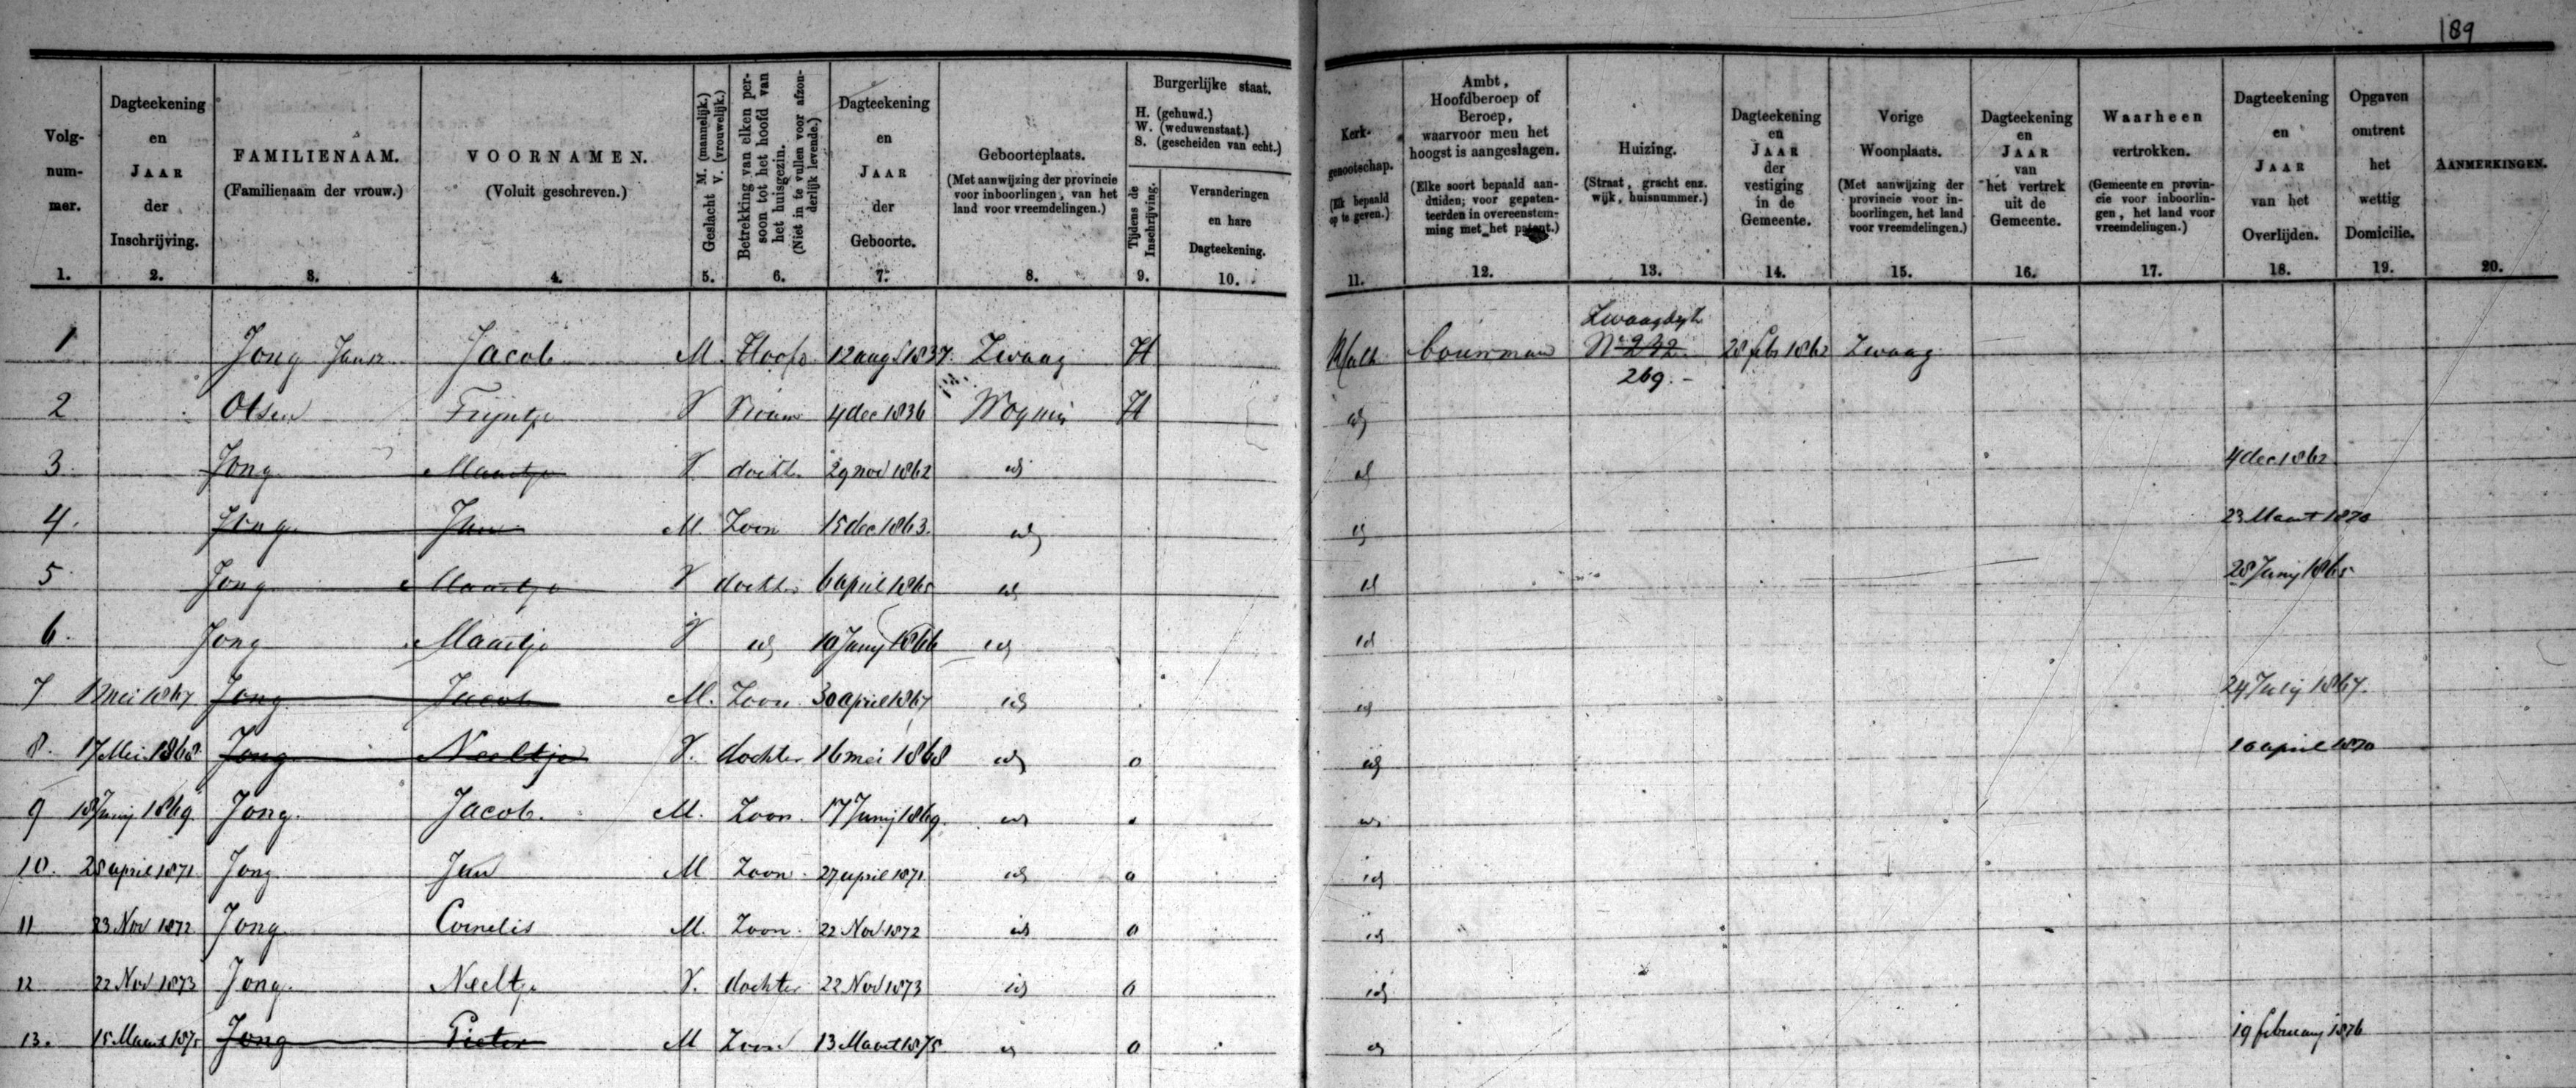 189
Volgnummer. 1.
Dagteekening en JAAR der Inschrijving. 2.
FAMILIENAAM. (Familienaam der vrouw.) 3.
VOORNAMEN. (Voluit geschreven.) 4.
Geslacht M. (mannelijk.) V. (vrouwelijk.) 5.
Betrekking van elken persoon tot het hoofd van het huisgezin. (Niet in te vullen voor afzonderlijk levende.) 6.
Dagteekening en JAAR der Geboorte. 7.
Geboorteplaats. (Met aanwijzing der provincie voor inboorlingen, van het land voor vreemdelingen.) 8.
Burgerlijke staat. H. (gehuwd.) W. (weduwenstaat.) S. (gescheiden van echt.)
Tijdens de Inschrijving. 9.
Veranderingen en hare Dagteekening. 10.
Kerkgenootschap. (Elk bepaald op te geven.) 11.
Ambt, Hoofdberoep of Beroep, waarvoor men het hoogst is aangeslagen. (Elke soort bepaald aanduiden; voor gepatenteerden in overeenstemming met het patent.) 12.
Huizing. (Straat, gracht enz. wijk, huisnummer.) 13.
Dagteekening en JAAR der vestiging in de Gemeente. 14.
Vorige Woonplaats. (Met aanwijzing der provincie voor inboorlingen, het land voor vreemdelingen.) 15.
Dagteekening en JAAR van het vertrek uit de Gemeente. 16.
Waarheen vertrokken. (Gemeente en provincie voor inboorlingen, het land voor vreemdelingen.) 17.
Dagteekening en JAAR van het Overlijden. 18.
Opgaven omtrent het wettig Domicilie. 19.
AANMERKINGEN. 20.
1 Jong Janz Jacob M. Hoofd 12 aug 1837 Zwaag H RCath bouwman Zwaagdyk No 242 269.- 28 feb 1862 Zwaag
2 Olsen Trijntje V Vrouw 4 dec 1836 Wognum H id
3 Jong Maartje V docht. 29 nov 1862 id id 4 dec 1862
4. Jong Jan M. Zoon 15 dec 1863. id id 23 Maart 1870
5 Jong Maartje V dochter 6 april 1865 id id 28 Junij 1865
6. Jong Maartje V id 10 Junij 1866 id id
7 1 mei 1867 Jong Jacob M. Zoon 30 april 1867 id id 24 Julij 1867.
8. 17 Mei 1868 Jong Neeltje V. dochter 16 mei 1868 id o id 10 april 1870
9 18 Junij 1869 Jong. Jacob. M. Zoon. 17 Junij 1869. id id
10. 28 april 1871 Jong Jan M Zoon 27 april 1871. id o id
11 23 Nov 1872 Jong Cornelis M. Zoon. 22 Nov 1872 id o id
12 22 Nov 1873 Jong. Neeltje V. dochter 22 Nov 1873 id o id
13. 15 Maart 1875 Jong Pieter M Zoon 13 Maart 1875 id o id 19 february 1876